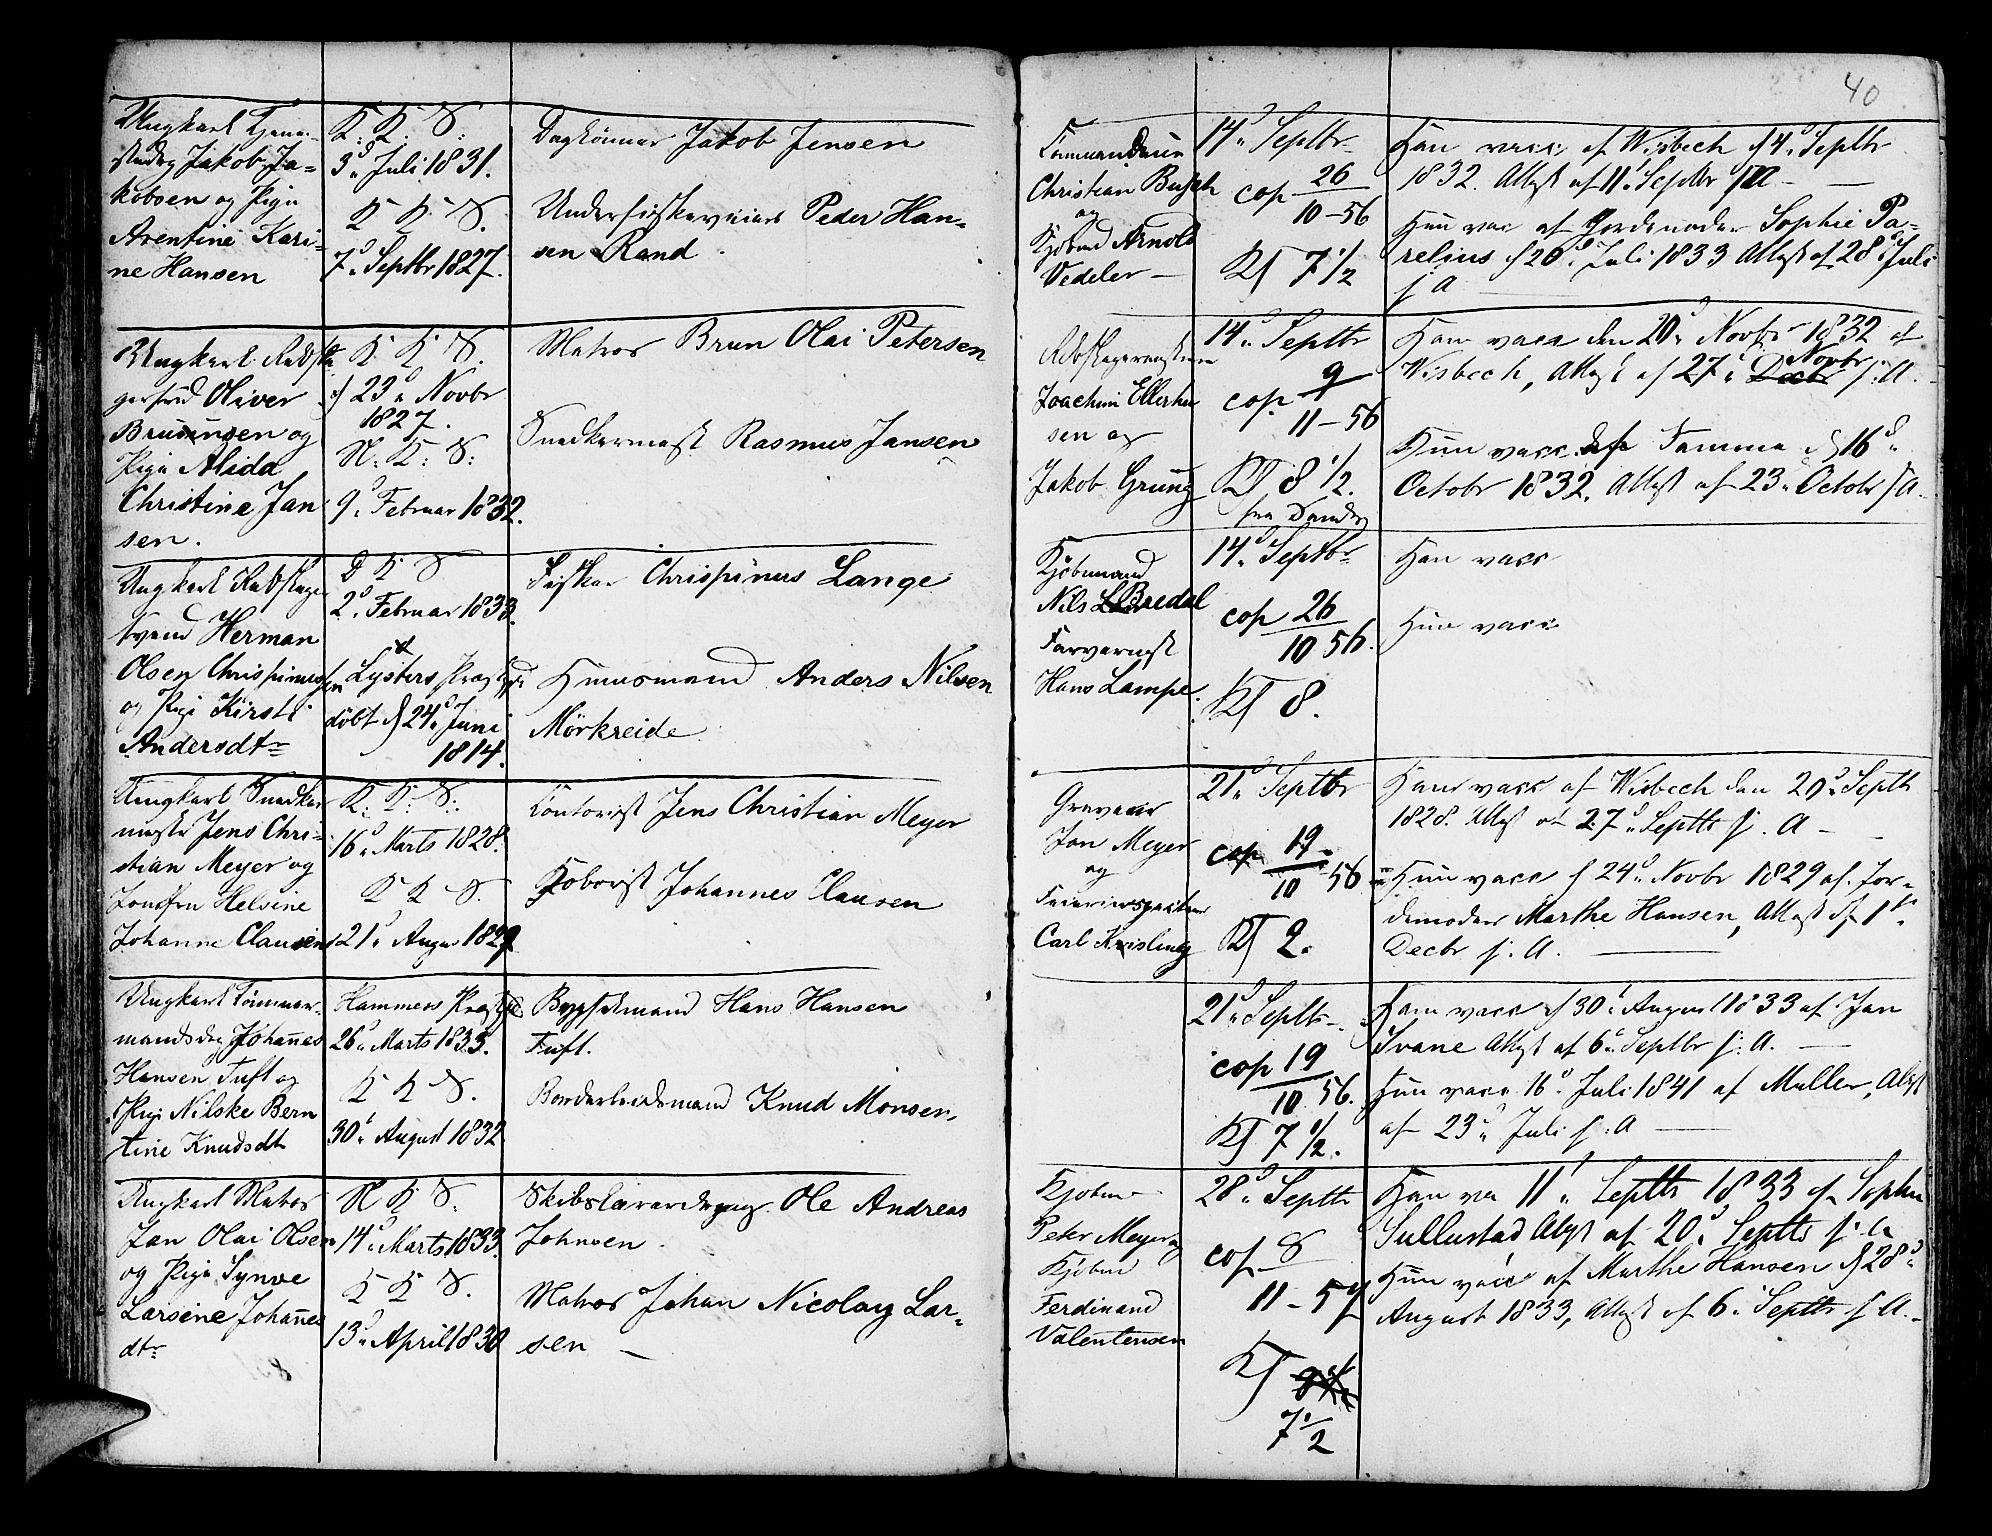 40
Ungkarl Tjene-
stedrg Jakob Ja-
kobsen og Pige
Arentine Kari-
ne Hansen
K. K. S.
3d Juli 1831.
K K. S.
7d Septbr 1827.
Dagkörner Jakob Jensen
Peder Han-
sen Rand
Ungkarl Rebsla
gersvd Oliver
og
Pige Alida
Christine Jan
sen.
K. K S.
d 23d Novbr
1827.
N: K: S:
9d Februar 1832.
Matros Brun Olai Petersen
Snedkermest Rasmus Jansen
Ungkarl Rebslager
svend Herman
Olsen Chrispinussen
og Pige Kirsti
Andersdtr
D K S
2d Februar 1833.
Lysters Præstgjd
döbt d 24d Juni
1814.
Fisker Chrispinus Lange
Huusmand Anders Nilsen
Mörkreide
Ungkarl Snedker
mester Jens Chri-
stian Meyer og
Jomfru Helsine
Johanne Clausen
K. K. S.
16d Marts 1828.
K K S.
21d August 1829
Contorist Jens Christian Meyer
Johannes Clausen
Ungkarl Tömmer-
mandsdrg Johannes
Hansen Tuft og
Pige Nilske Bern
tine Knudsdtr
Hammers Præstgjd
26d Marts 1833.
K K S.
30d August 1832
Bygselmand Hans Hansen
Tuft.
Borderleidsmand Knud Monsen
Ungkarl Matros
Jan Olai Olsen
og Pige Synve
Larsine Johannes
dtr
N K S.
14d Marts 1833.
K K S.
13d April 1830
Ole Andreas
Johnsen
Matros Johan Nicolay Lar-
sen
Christian Busch
og
Kjöbmd Arnold
Vedeler
14d Septbr
cop 26
10-56
Kl 7 1/2
Han vacc af Wisbech d 4d Septbr
1832. Attest af 11t Septbr s A
Hun vac af Jordemoder Sophie Pa-
relius d 20d Juli 1833 Attest af 28d Juli
s A
Rebslagermesterne
Joachim Ellerhu
sen og
Jakob Grung
14d Septbr
cop. 9
11-56
Kl 8 1/2.
Han vacc den 20d Novbr 1832 af
Novbr
Wisbech, Attest af 27d Decbr s. A.
Hun vacc. Tamma d 16d
October 1832. Attest af 23d Octobr s A.
Kjöbmand
Nils Bredal
Farvermest
Hans Lampe.
14d Septbr
cop 26
10 56.
Kl 8.
Han vacc
Hun vacc
Graveur
Jan Meyer
og
Carl Kvisling
21d Septbr
cop 19
10-56
Kl 2.
Han vacc af Wisbech den 20d Septb
1828. Attest af 27d Septbr s. A
Hun vacc d 24d Novbr 1829 af Jor-
demoder Marthe Hansen, Attest af 1st
Decbr s. A.
21d Septbr
cop 19
10 56.
Kl 7 1/2.
Han vacc d 30t August 1833 af Jan
Svane Attest af 6d Septbr s. A.
Hun vacc 16d Juli 1841 af Muller, Attest
af 23d Juli s. A
Kjöbm
Peter Meyer og
Kjöbmd
Ferdinand
Valentinsen
28d Septbr
cop 8
11-57
Kl
7 1/2
Han va 11t Septbr 1833 af Sophie
Sullustad Attest af 20d Septbr s. a
Hun vacc af Marthe Hansen d 28d
August 1833, Attest af 6d Septbr s A.